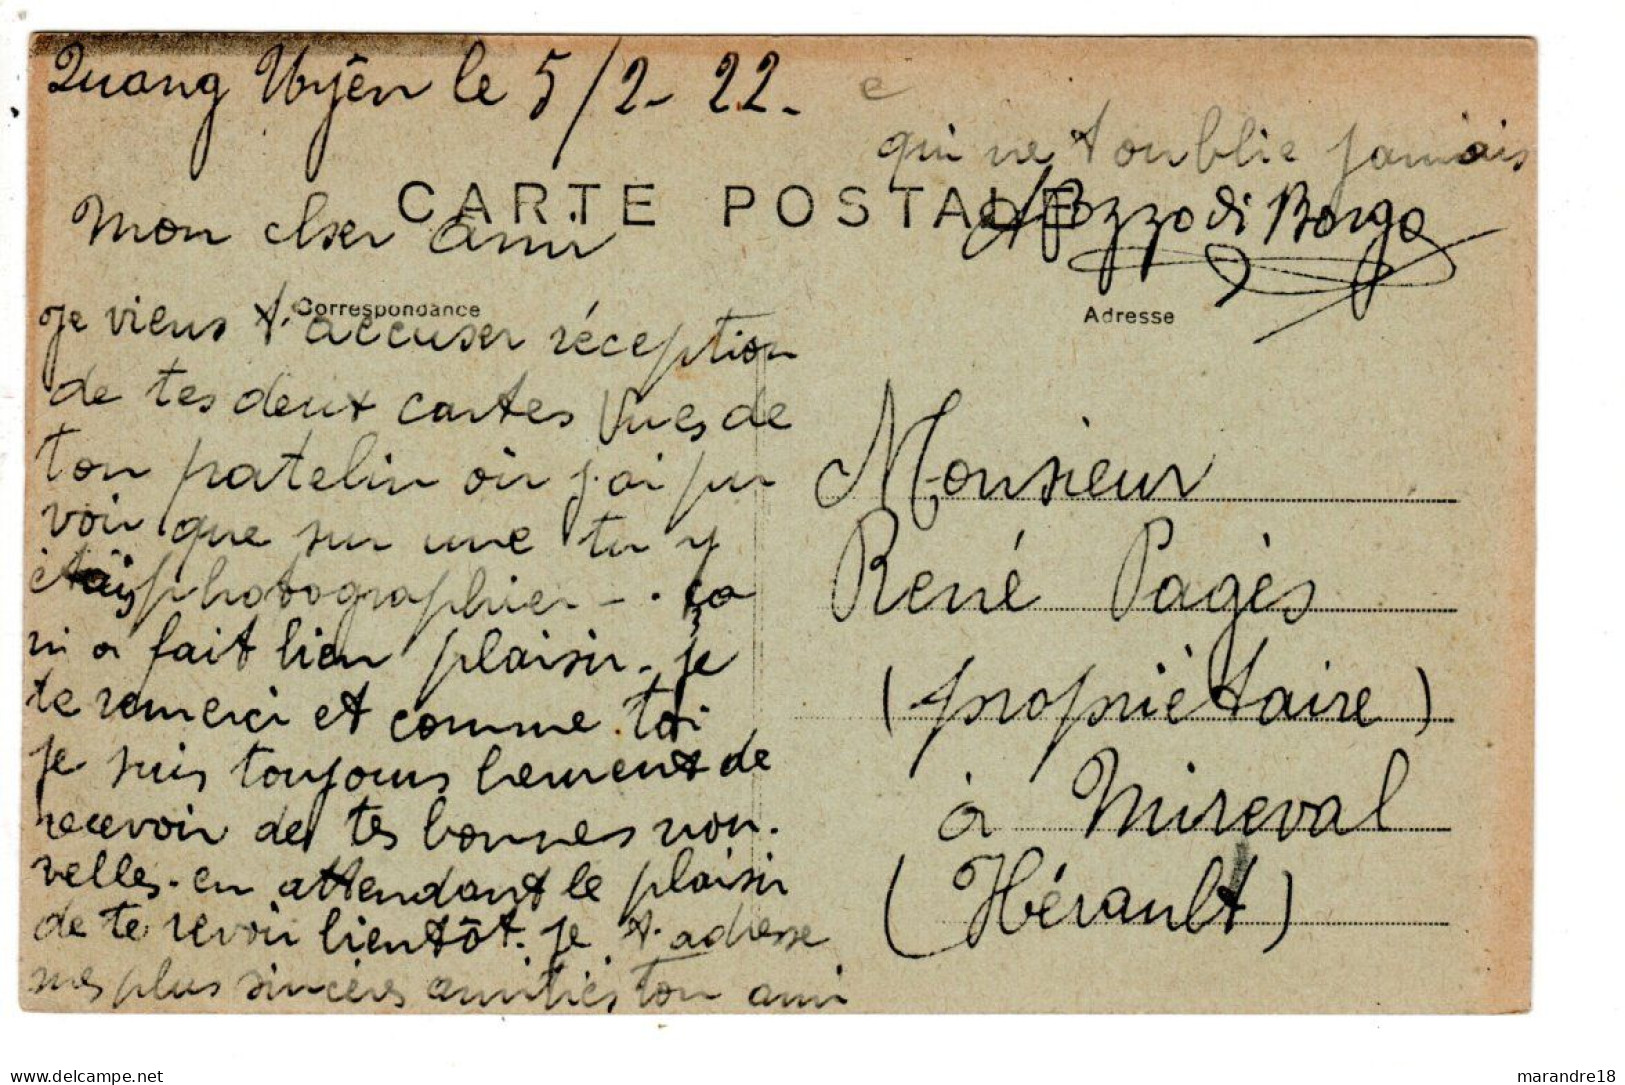 Quang Uyên le 5/2-22-
Mon cher ami
je viens t'accuser réception
de tes deux cartes Vues de
ton patelin où j'ai pu
voir que sur une tu y
étais photographier - . ça
m'a fait bien plaisir - je
te remerci et comme toi
je suis toujours hereux de
recevoir de tes bonnes nou.
velles. en attendant le plaisir
de te revoir bientôt. je t'adresse
mes plus sincères amitiés ton ami
qui ne t'oublie jamais
Pozzo di Borgo
CARTE POSTALE
Correspondance
Adresse
Monsieur
René Pagès
(propriétaire)
à Mireval
(Hérault)
delcampe.net
marandre18